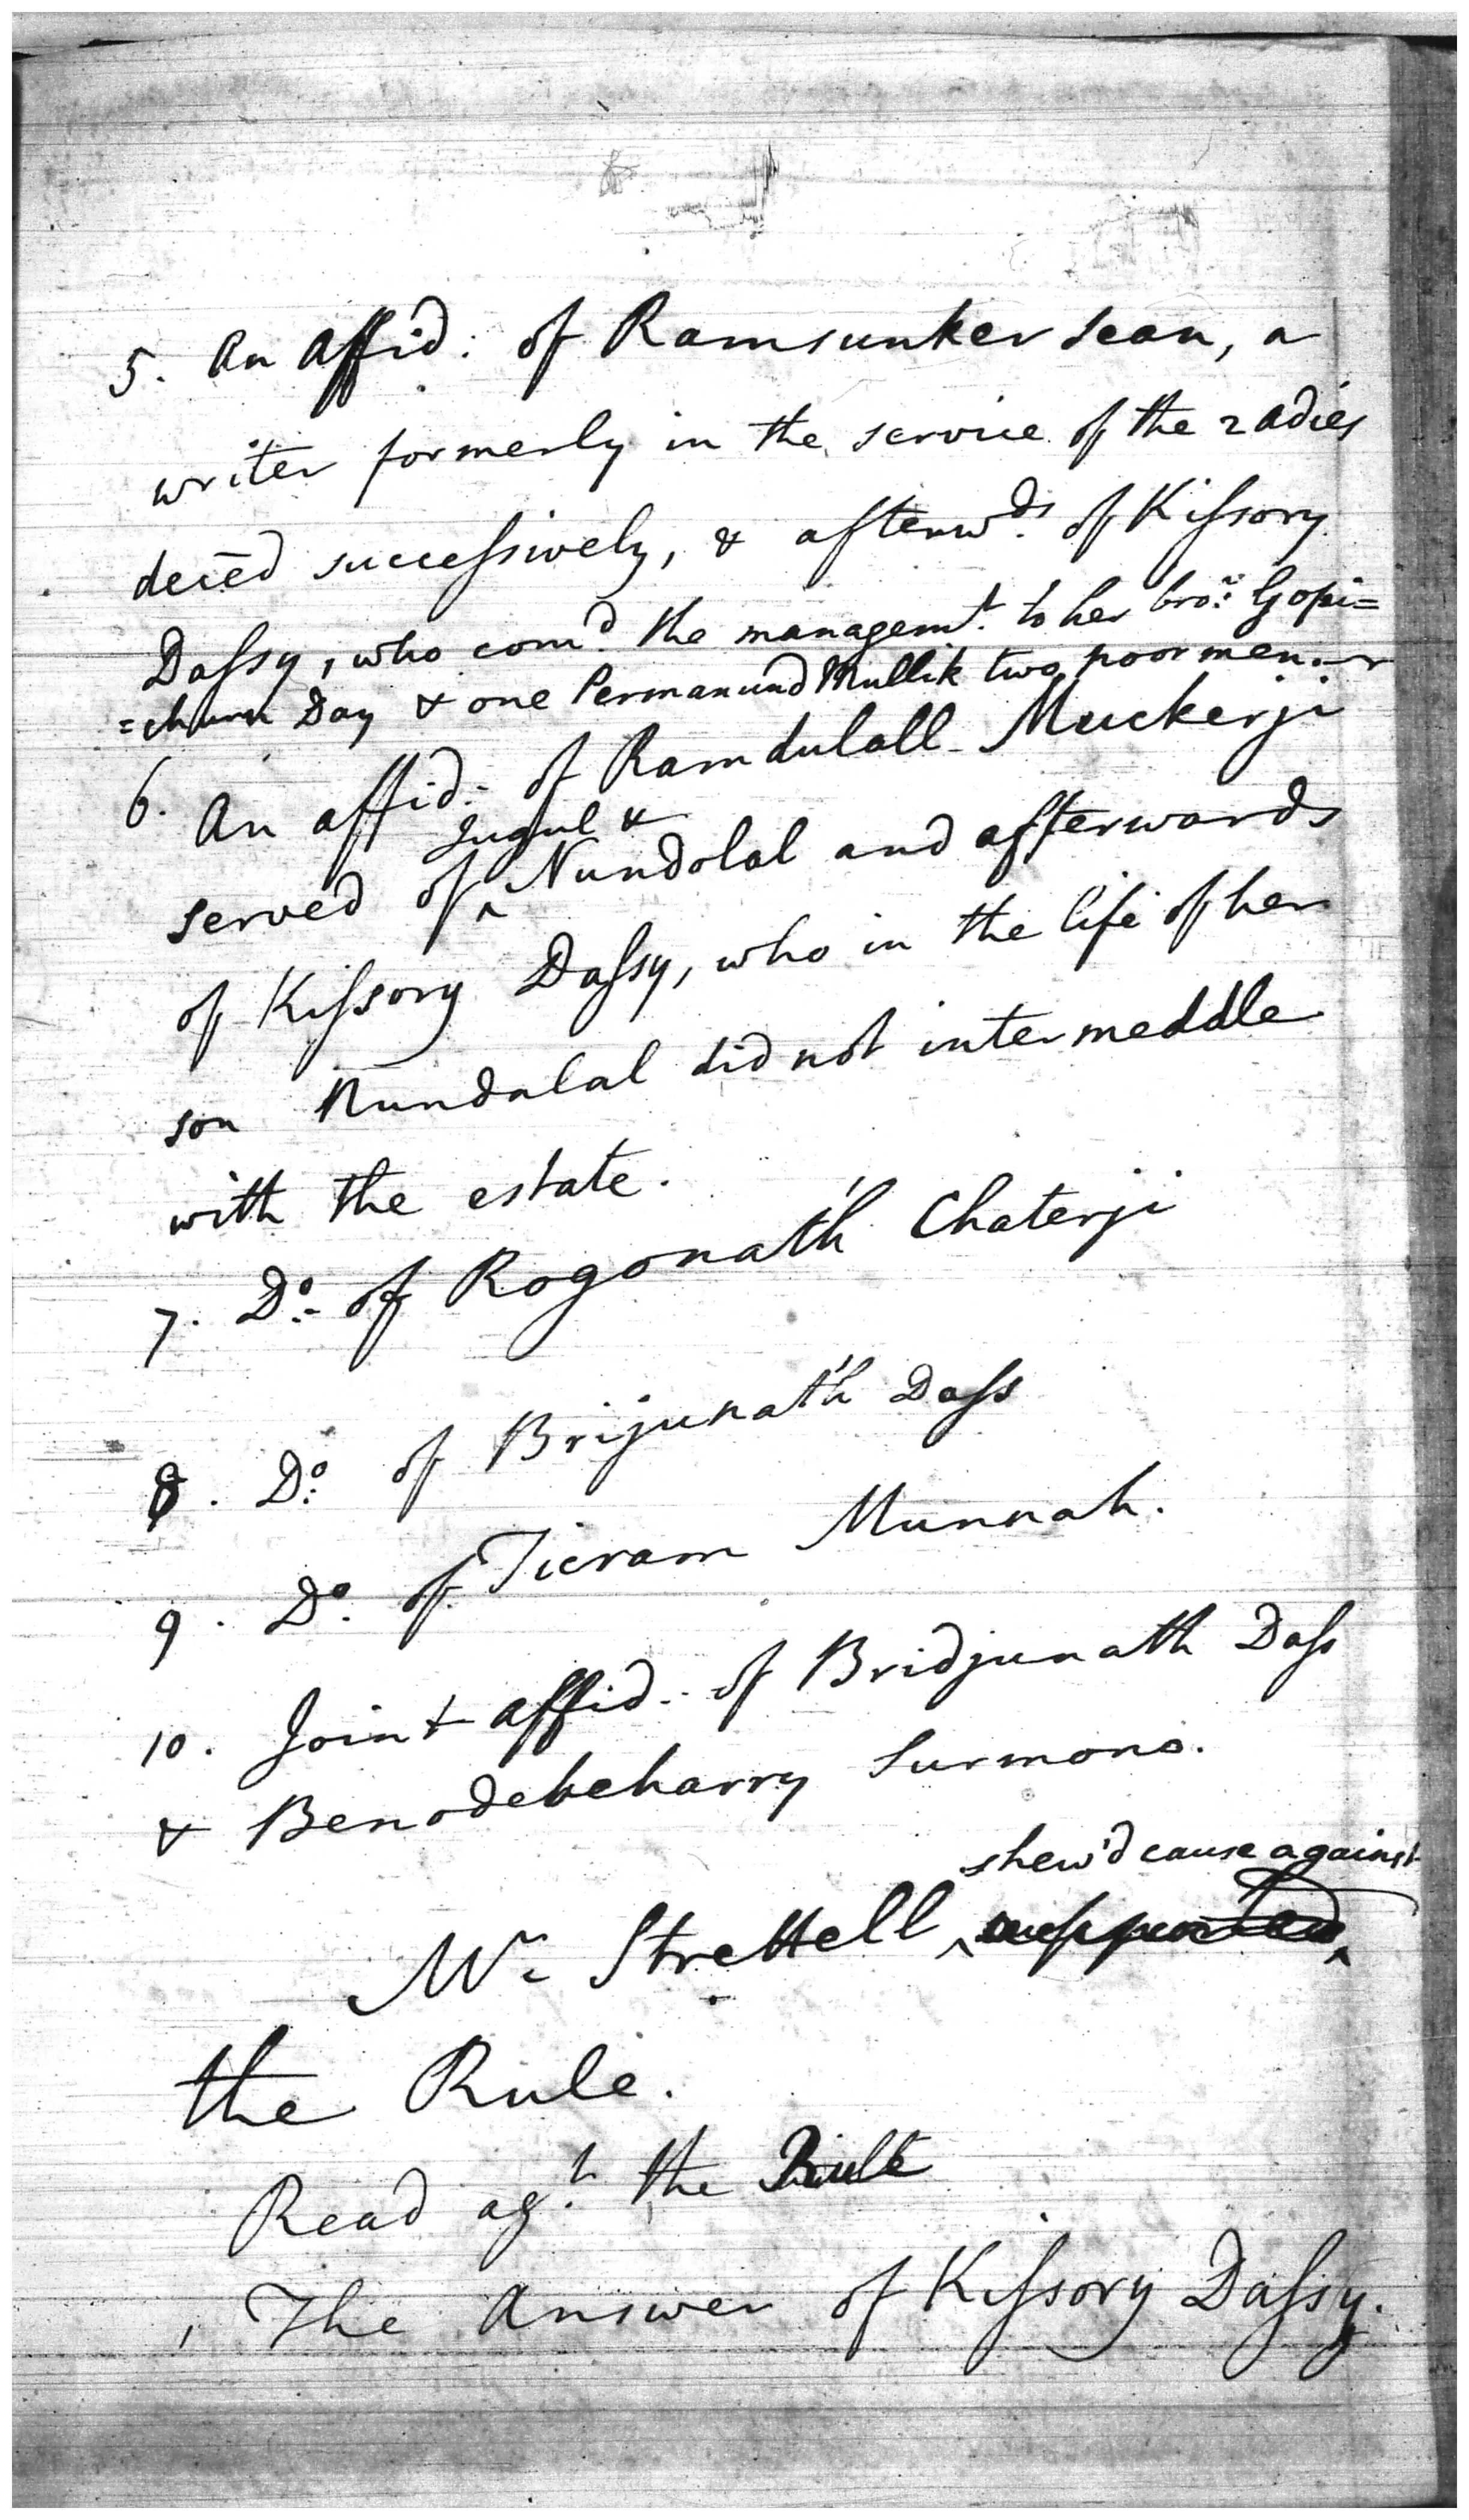 5. An Affid: of Ramsunker Sean, a
writer formerly in the service of the 2 adies
deced successively, & afterwds. of Kissory
Dassy, who comd. the managemt. to her bror: Gopi=
=churn Day & one Permanund Mullik two poor men.
6. An affid:- of Ramdulall Muckerji
Jugul &
served of ^ Nundolal and afterwards
of Kissory Dassy, who in the life of her
son Nundalal did not intermeddle
with the estate.
7. Do:- of Rogonath Chaterji
8. Do: of Brijunath Dass
9. Do. of Jieram Munnah.
10. Joint affid.. of Bridjunath Dass
& Benodebeharry Surmono.
shew'd cause against
Mr. Strettell ^ supported ^
the Rule.
Read agt. the Rule
1 The Answer of Kissory Dassy.